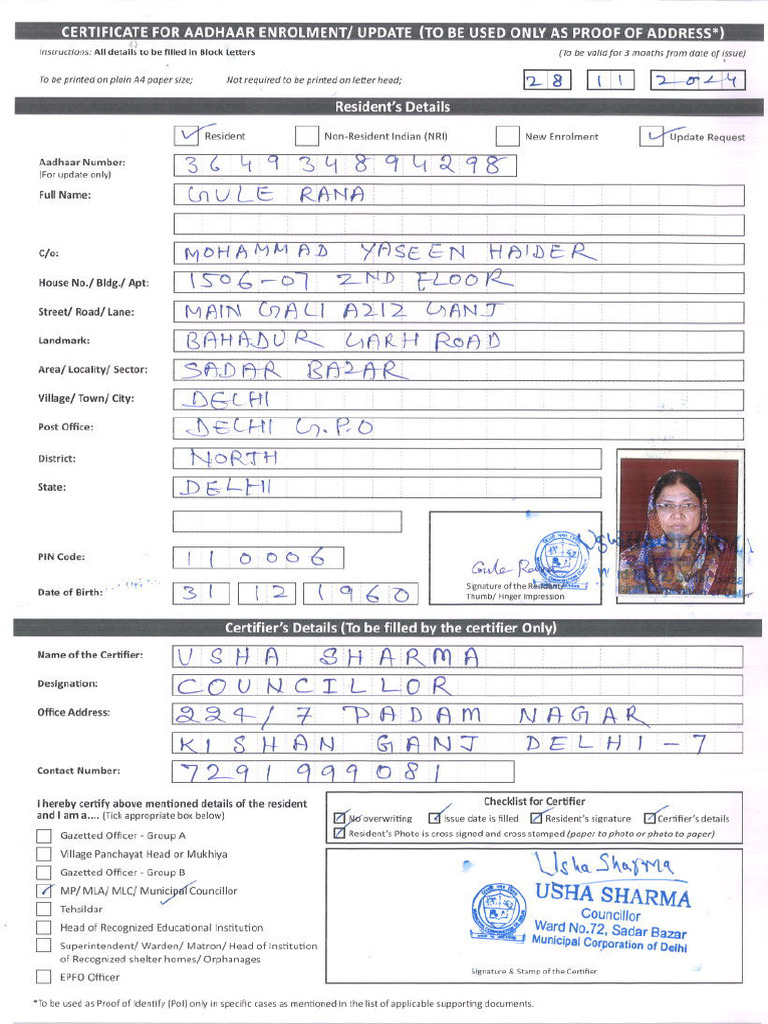 CERTIFICATE FOR AADHAAR ENROLMENT/ UPDATE (TO BE USED ONLY AS PROOF OF ADDRESS*)
Instructions: All details to be filled in Block Letters (To be valid for 3 months from date of issue)
To be printed on plain A4 paper size; Not required to be printed on letter head; 28 11 2024
Resident's Details
Resident Non-Resident Indian (NRI) New Enrolment Update Request
Aadhaar Number: 364934894298
(For update only)
Full Name: GULE RANA
C/o: MOHAMMAD YASEEN HAIDER
House No./ Bldg./ Apt: 1506-07 2ND FLOOR
Street/ Road/ Lane: MAIN GALI AZIZ GANJ
Landmark: BAHADUR GARH ROAD
Area/ Locality/ Sector: SADAR BAZAR
Village/ Town/ City: DELHI
Post Office: DELHI G.P.O
District: NORTH
State: DELHI
PIN Code: 110006
Gule Rana
Date of Birth: 31 12 1960
Signature of the Resident/
Thumb/ Finger Impression
USHA SHARMA
Certifier's Details (To be filled by the certifier Only)
Name of the Certifier: USHA SHARMA
Designation: COUNCILLOR
Office Address: 224/7 PADAM NAGAR
KISHAN GANJ DELHI-7
Contact Number: 7291999081
I hereby certify above mentioned details of the resident
and I am a.... (Tick appropriate box below)
Gazetted Officer - Group A
Village Panchayat Head or Mukhiya
Gazetted Officer - Group B
MP/ MLA/ MLC/ Municipal Councillor
Tehsildar
Head of Recognized Educational Institution
Superintendent/ Warden/ Matron/ Head of Institution
of Recognized shelter homes/ Orphanages
EPFO Officer
Checklist for Certifier
No overwriting Issue date is filled Resident's signature Certifier's details
Resident's Photo is cross signed and cross stamped (paper to photo or photo to paper)
Usha Sharma
USHA SHARMA
Councillor
Ward No.72, Sadar Bazar
Municipal Corporation of Delhi
Signature & Stamp of the Certifier
*To be used as Proof of Identify (PoI) only in specific cases as mentioned in the list of applicable supporting documents.